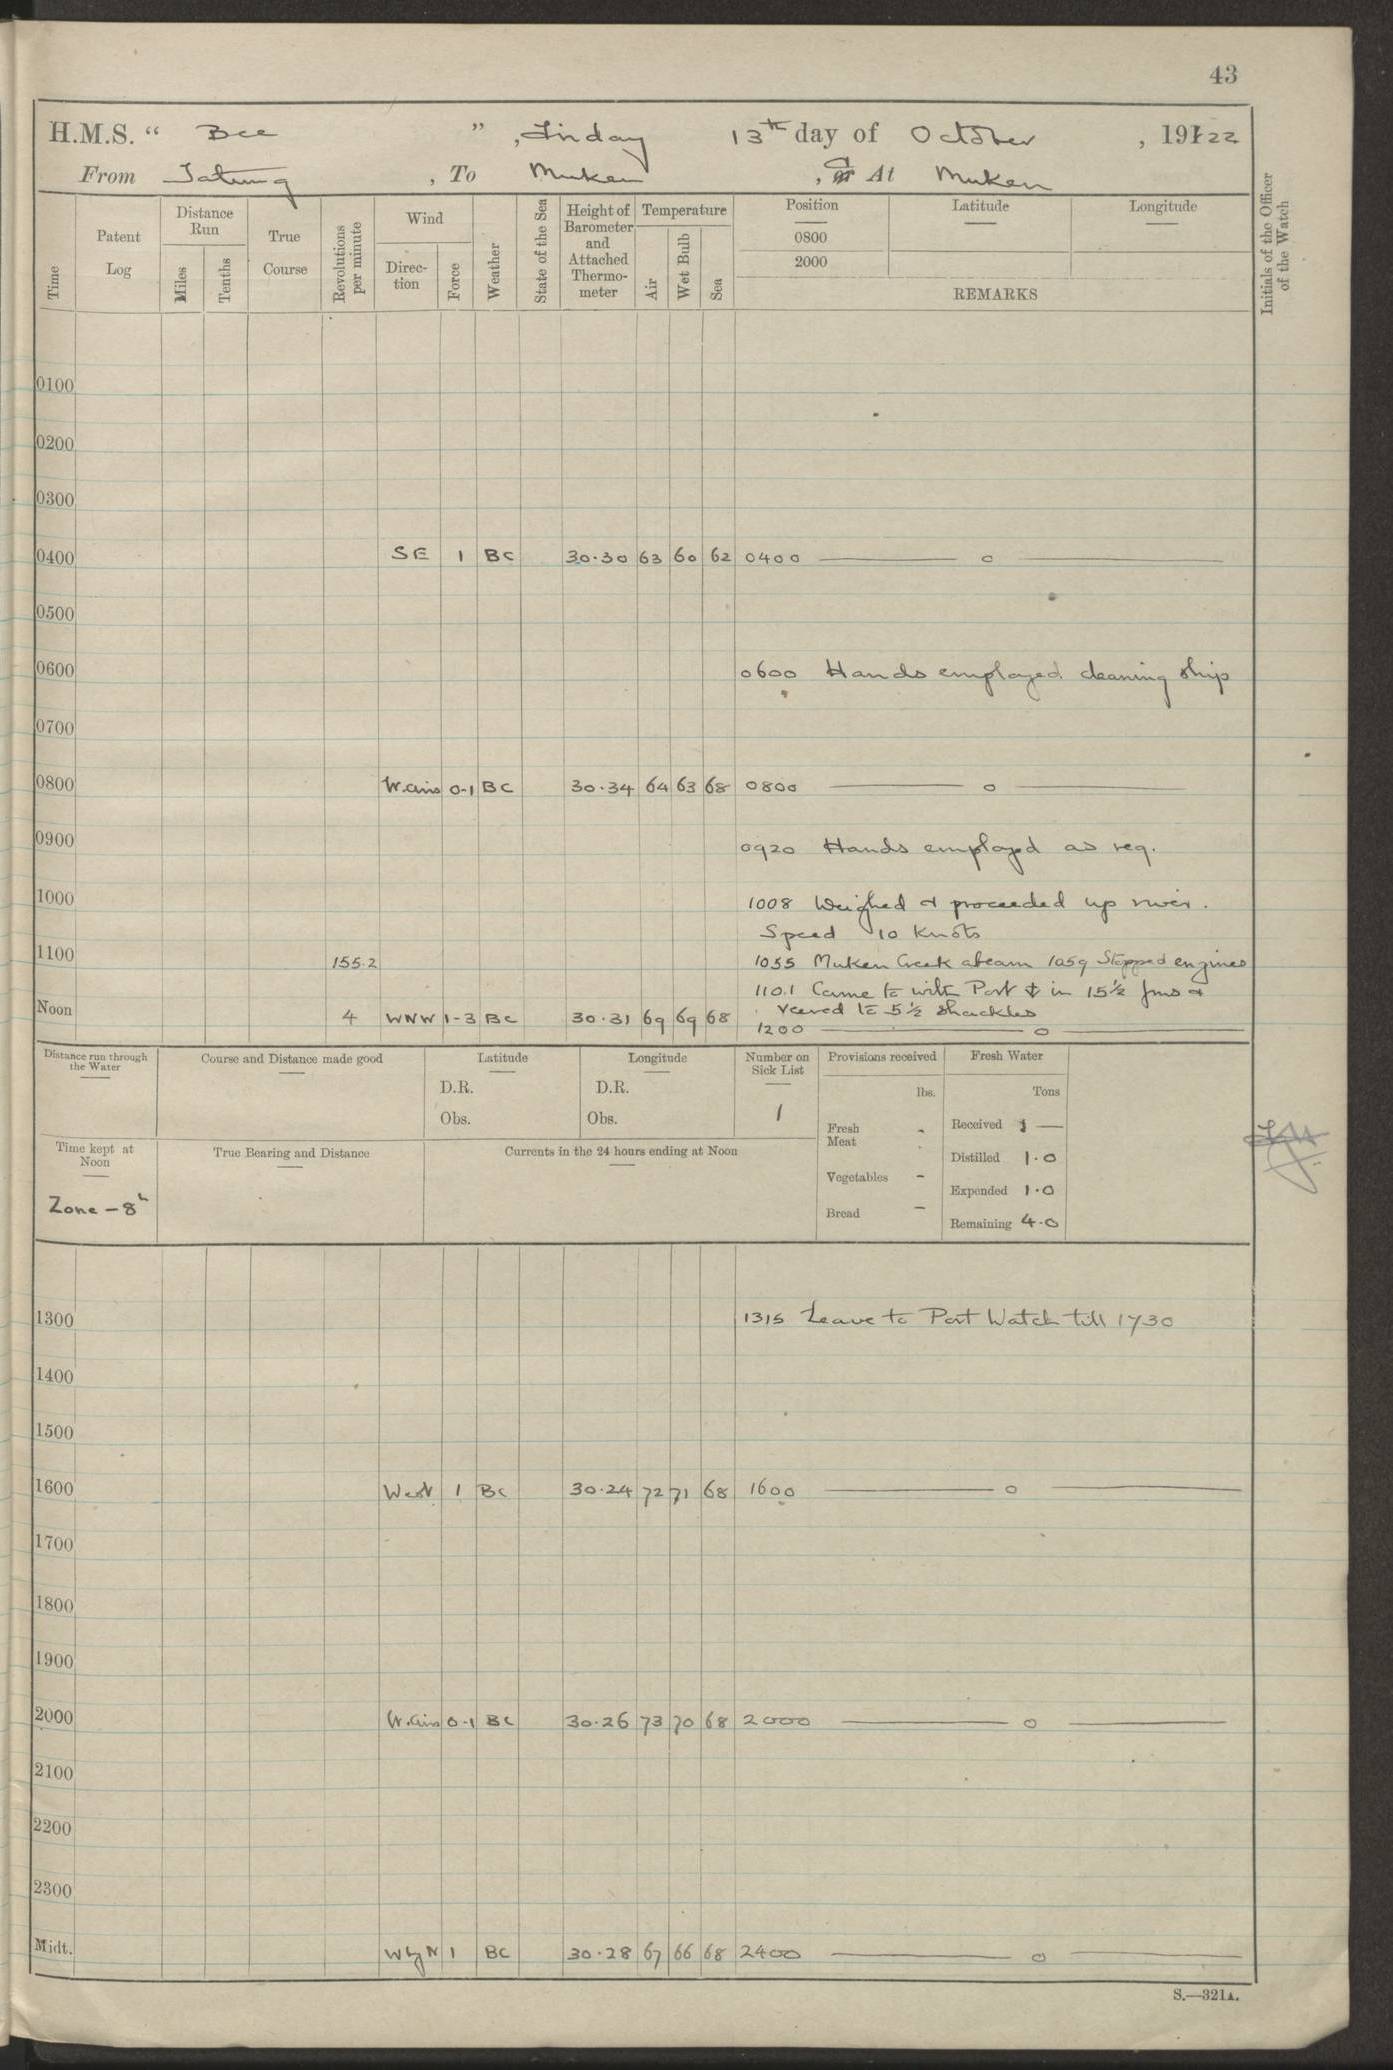 43
H.M.S. “ Bee ” , Friday 13th day of October , 1922
From Tatung , To Muken , or At Muken
Time
Patent Log
Distance Run
Miles
Tenths
True Course
Revolutions per minute
Wind
Direction
Force
Weather
State of the Sea
Height of Barometer and Attached Thermometer
Temperature
Air
Wet Bulb
Sea
Position
0800
2000
Latitude
Longitude
REMARKS
Initials of the Officer of the Watch
0100
0200
0300
0400 SE 1 BC 30.30 63 60 62 0400 —— o ——
0500
0600 0600 Hands employed cleaning ship
0700
0800 W.airs 0-1 BC 30.34 64 63 68 0800 —— o ——
0900 0920 Hands employed as req.
1000 1008 Weighed & proceeded up river.
Speed 10 Knots
1100 155.2 1055 Muken Creek abeam 1059 Stopped engines
1101 Came to with Port ⚓ in 15½ fms &
veered to 5½ shackles
Noon 4 WNW 1-3 BC 30.31 69 69 68 1200 —— o ——
Distance run through the Water
Course and Distance made good
Latitude
D.R.
Obs.
Longitude
D.R.
Obs.
Number on Sick List
1
Provisions received
lbs.
Fresh Meat -
Vegetables -
Bread -
Fresh Water
Tons
Received —
Distilled 1.0
Expended 1.0
Remaining 4.0
Time kept at Noon
Zone -8h
True Bearing and Distance
Currents in the 24 hours ending at Noon
1300 1315 Leave to Port Watch till 1730
1400
1500
1600 West 1 BC 30.24 72 71 68 1600 —— o ——
1700
1800
1900
2000 W.airs 0-1 BC 30.26 73 70 68 2000 —— o ——
2100
2200
2300
Midt. WbyN 1 BC 30.28 67 66 68 2400 —— o ——
S.—321A.